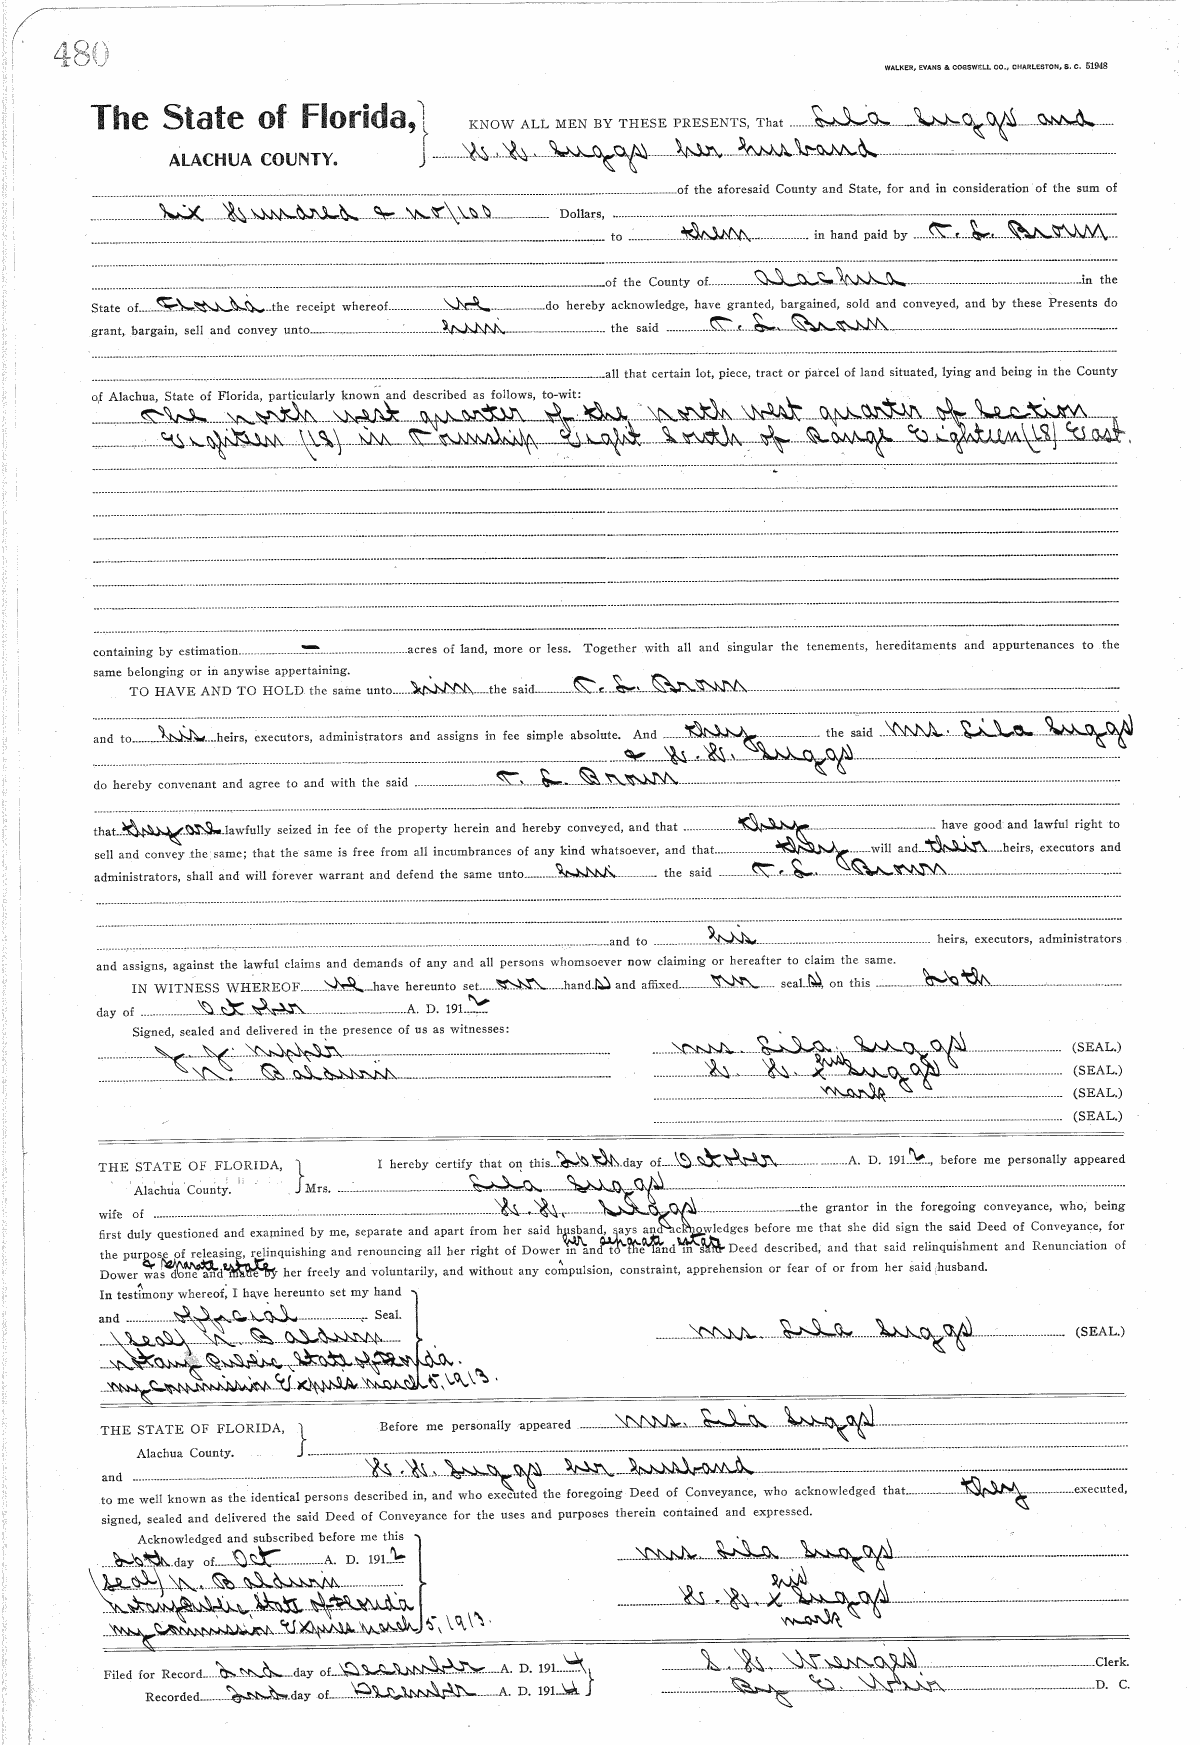 480
WALKER, EVANS & COGSWELL CO., CHARLESTON, S. C. 51948
The State of Florida, KNOW ALL MEN BY THESE PRESENTS, That Lila Suggs and
ALACHUA COUNTY. H. H. Suggs her husband
of the aforesaid County and State, for and in consideration of the sum of
Six Hundred & no/100 Dollars,
to them in hand paid by T. L. Brown
of the County of Alachua in the
State of Florida the receipt whereof we do hereby acknowledge, have granted, bargained, sold and conveyed, and by these Presents do
grant, bargain, sell and convey unto him the said T. L. Brown
all that certain lot, piece, tract or parcel of land situated, lying and being in the County
of Alachua, State of Florida, particularly known and described as follows, to-wit:
The north west quarter of the north west quarter of Section
Eighteen (18) in Township Eight South of Range Eighteen (18) East.
containing by estimation — acres of land, more or less. Together with all and singular the tenements, hereditaments and appurtenances to the
same belonging or in anywise appertaining.
TO HAVE AND TO HOLD the same unto him the said T. L. Brown
and to his heirs, executors, administrators and assigns in fee simple absolute. And they the said Mrs. Lila Suggs
& H. H. Suggs
do hereby convenant and agree to and with the said T. L. Brown
that they are lawfully seized in fee of the property herein and hereby conveyed, and that they have good and lawful right to
sell and convey the same; that the same is free from all incumbrances of any kind whatsoever, and that they will and their heirs, executors and
administrators, shall and will forever warrant and defend the same unto him the said T. L. Brown
and to his heirs, executors, administrators
and assigns, against the lawful claims and demands of any and all persons whomsoever now claiming or hereafter to claim the same.
IN WITNESS WHEREOF we have hereunto set our hand s and affixed our seal s, on this 26th
day of October A. D. 1912
Signed, sealed and delivered in the presence of us as witnesses:
J. J. Nipper Mrs Lila Suggs (SEAL.)
N. Baldwin H. H. his x Suggs (SEAL.)
mark (SEAL.)
(SEAL.)
THE STATE OF FLORIDA, I hereby certify that on this 26th day of October A. D. 1912, before me personally appeared
Alachua County. Mrs. Lila Suggs
wife of H. H. Suggs the grantor in the foregoing conveyance, who, being
first duly questioned and examined by me, separate and apart from her said husband, says and acknowledges before me that she did sign the said Deed of Conveyance, for
her separate estate
the purpose of releasing, relinquishing and renouncing all her right of Dower in and to the land in said Deed described, and that said relinquishment and Renunciation of
& separate estate
Dower was done and made by her freely and voluntarily, and without any compulsion, constraint, apprehension or fear of or from her said husband.
In testimony whereof, I have hereunto set my hand
and official Seal.
(Seal) N. Baldwin Mrs. Lila Suggs (SEAL.)
Notary Public, State of Florida.
My Commission Expires March 5, 1913.
THE STATE OF FLORIDA, Before me personally appeared Mrs. Lila Suggs
Alachua County.
and H. H. Suggs her husband
to me well known as the identical persons described in, and who executed the foregoing Deed of Conveyance, who acknowledged that they executed,
signed, sealed and delivered the said Deed of Conveyance for the uses and purposes therein contained and expressed.
Acknowledged and subscribed before me this
26th day of Oct A. D. 1912 Mrs Lila Suggs
(Seal) N. Baldwin his
Notary Public, State of Florida H. H. x Suggs
My Commission Expires March 5, 1913. mark
Filed for Record 2nd day of December A. D. 1914, S. H. Wienges Clerk.
Recorded 2nd day of December A. D. 1914 By E. Weir D. C.